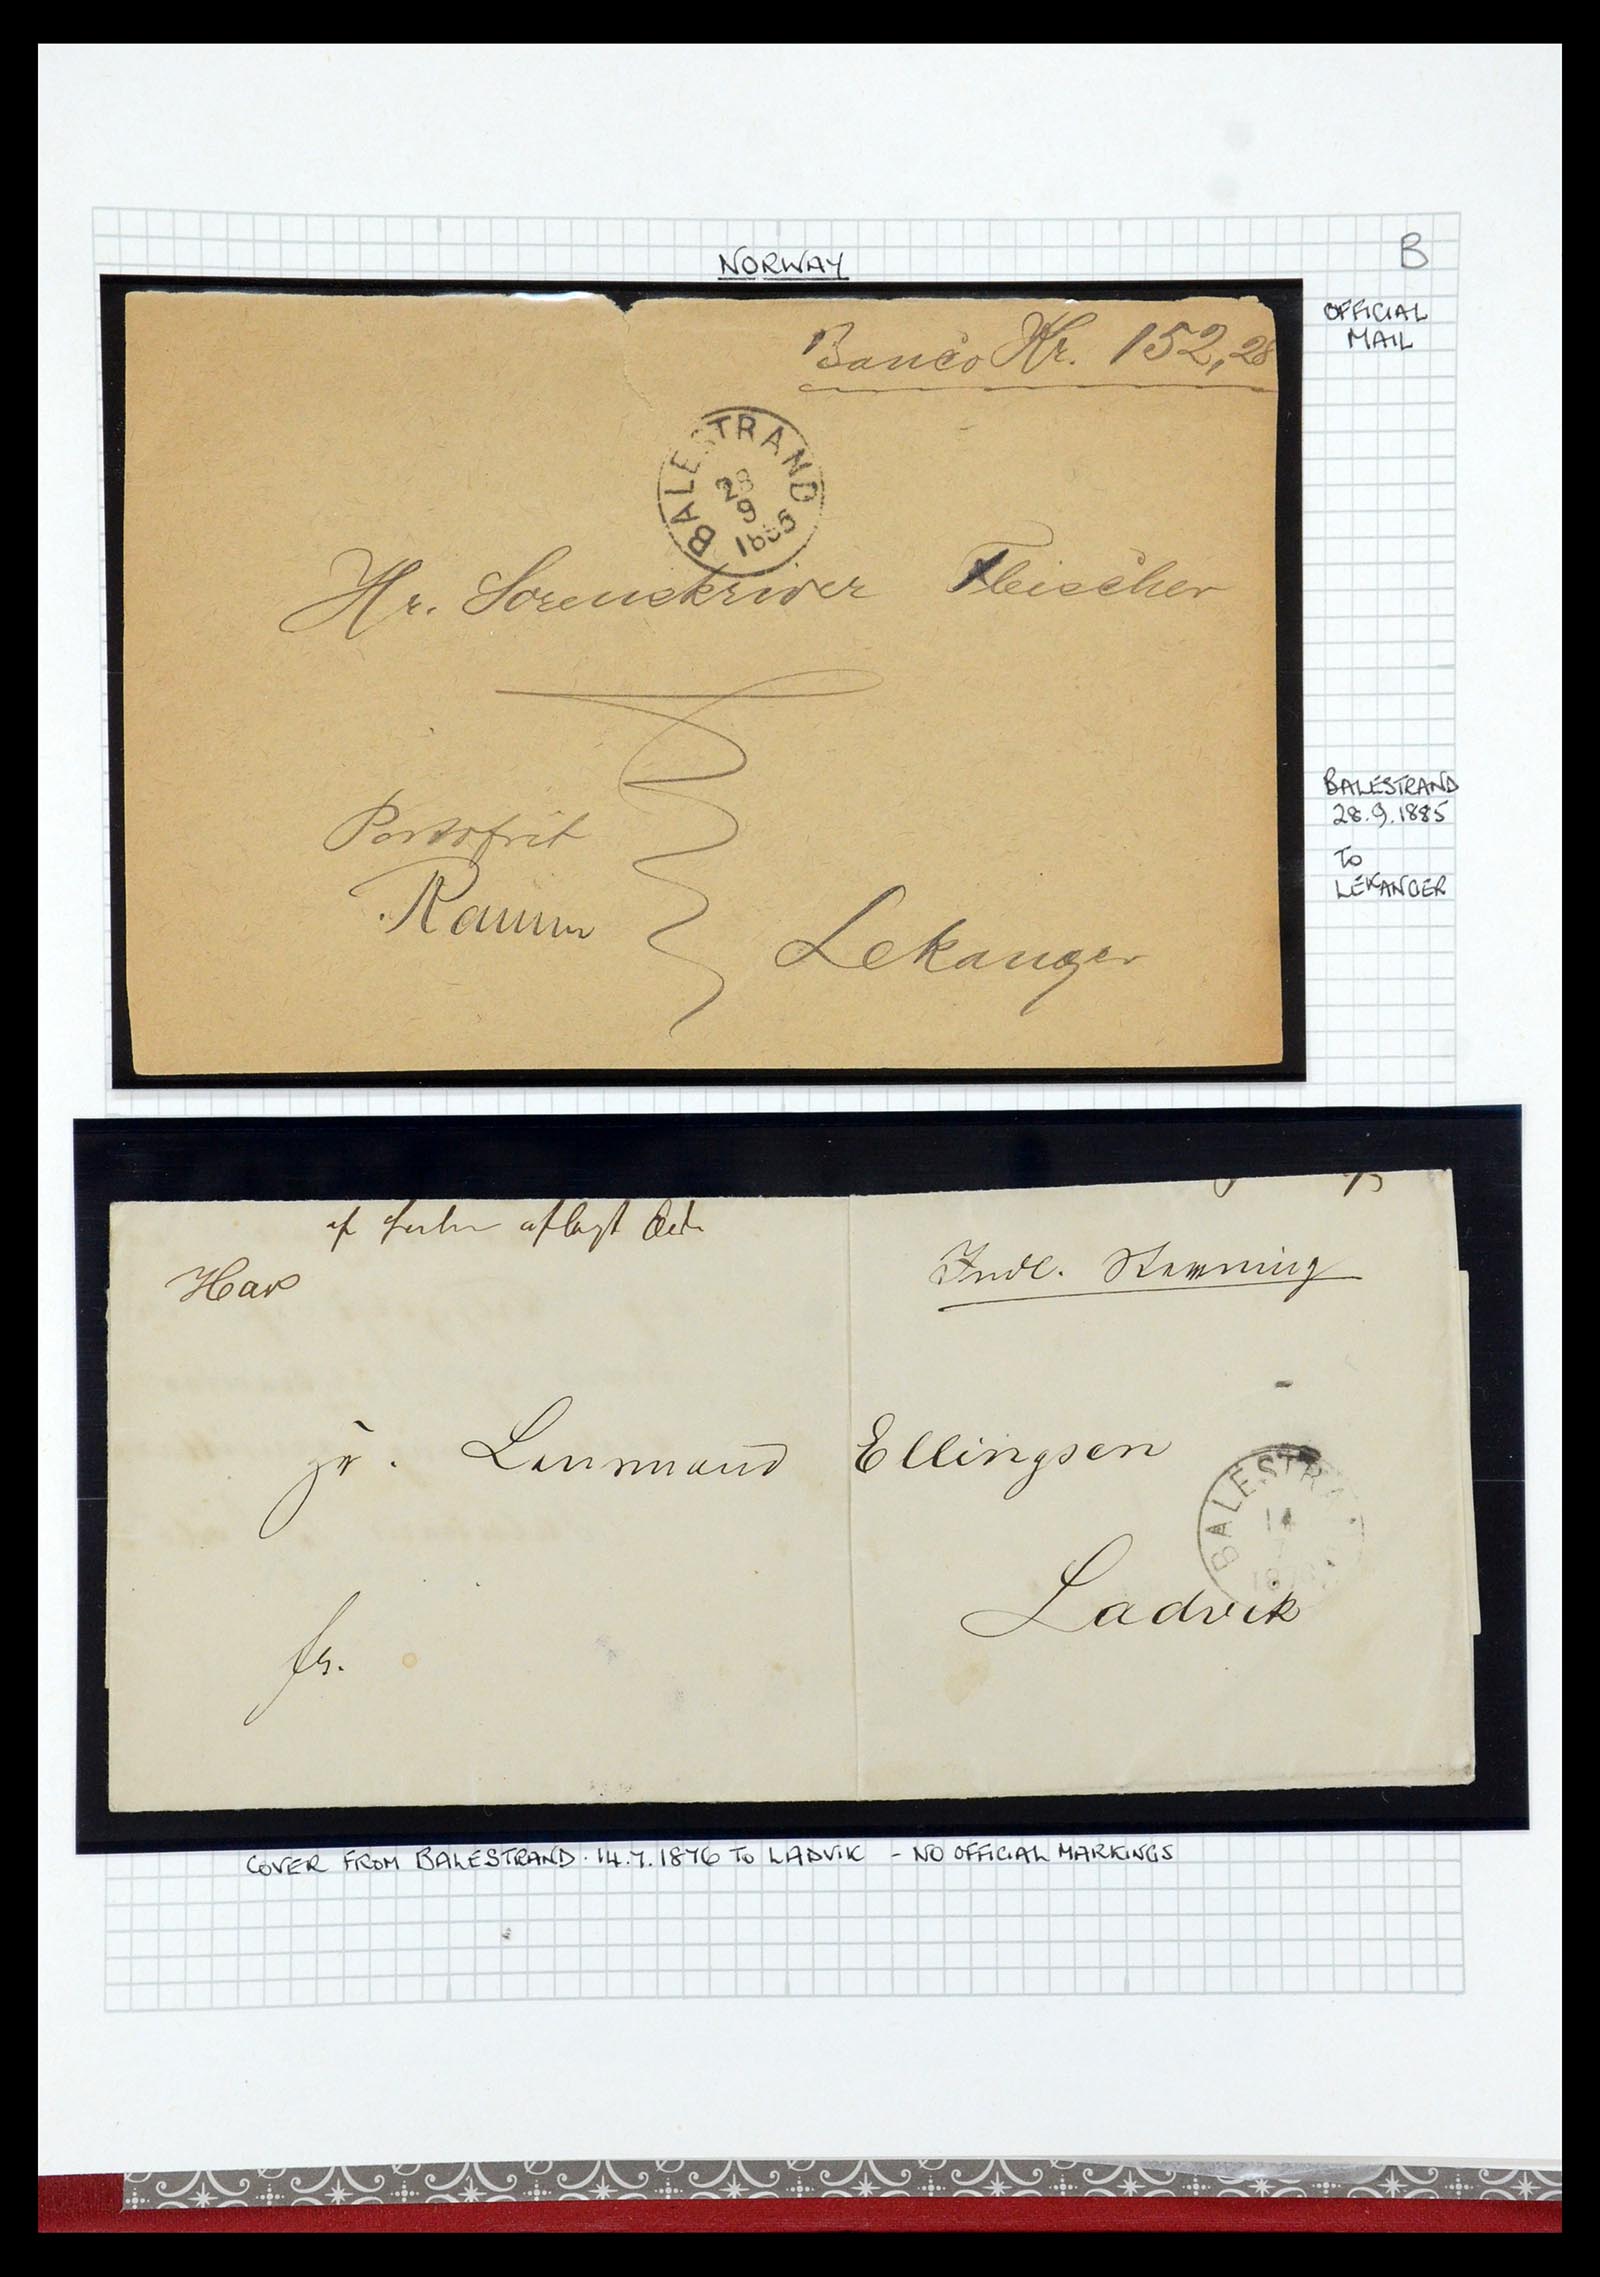 NORWAY
B
OFFICIAL
MAIL
Banco Kr. 152,28
BALESTRAND
28
9
1885
Hr. Sorenskriver Fleischer
Portofrit
Ramm
Lekanger
BALESTRAND
28.9.1885
TO
LEKANGER
af aflagt
Indl. Stevning
Har
Hr. Lensmand Ellingsen
BALESTRA
14
7
187
Ladvik
fr.
COVER FROM BALESTRAND. 14.7.1876 TO LADVIK - NO OFFICIAL MARKINGS